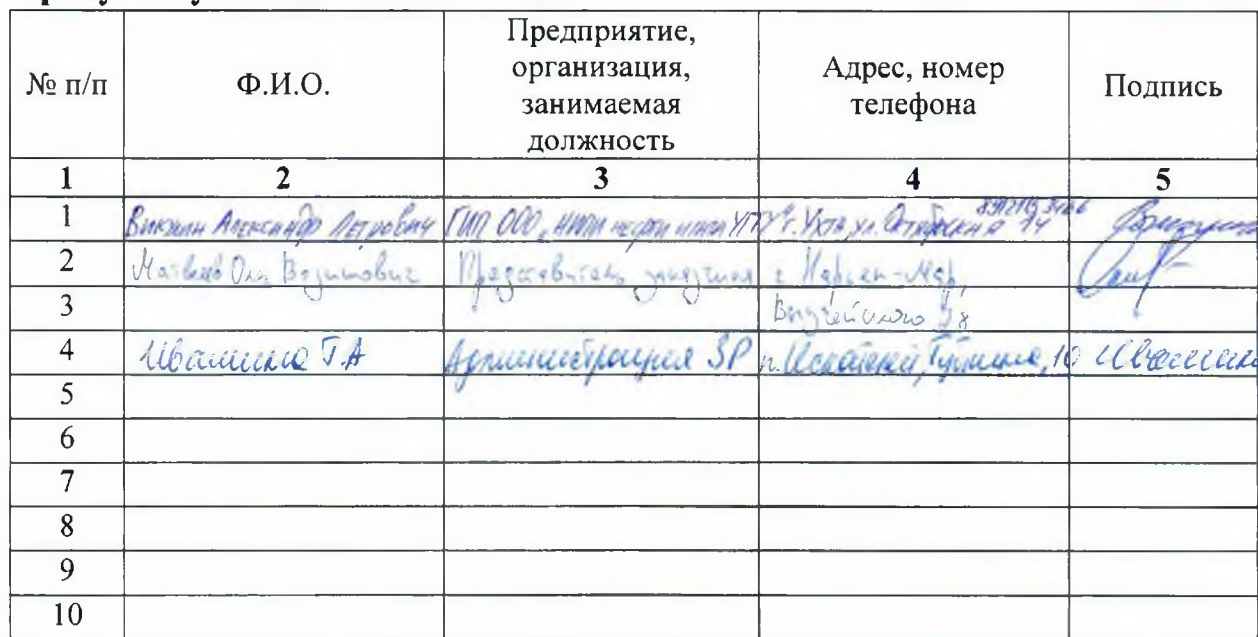 № п/п Ф.И.О. Предприятие, организация, занимаемая должность Адрес, номер телефона Подпись
1 2 3 4 5
1 Александр Петрович ГИП ООО г. Ухта ул. Октябрьская 14
2 Матвеев Вадимович Представитель заказчика г. Нарьян-Мар,
3 Выучейского 28
4 Ивашина Т.А Администрация ЗР п. Искателей, 10
5
6
7
8
9
10